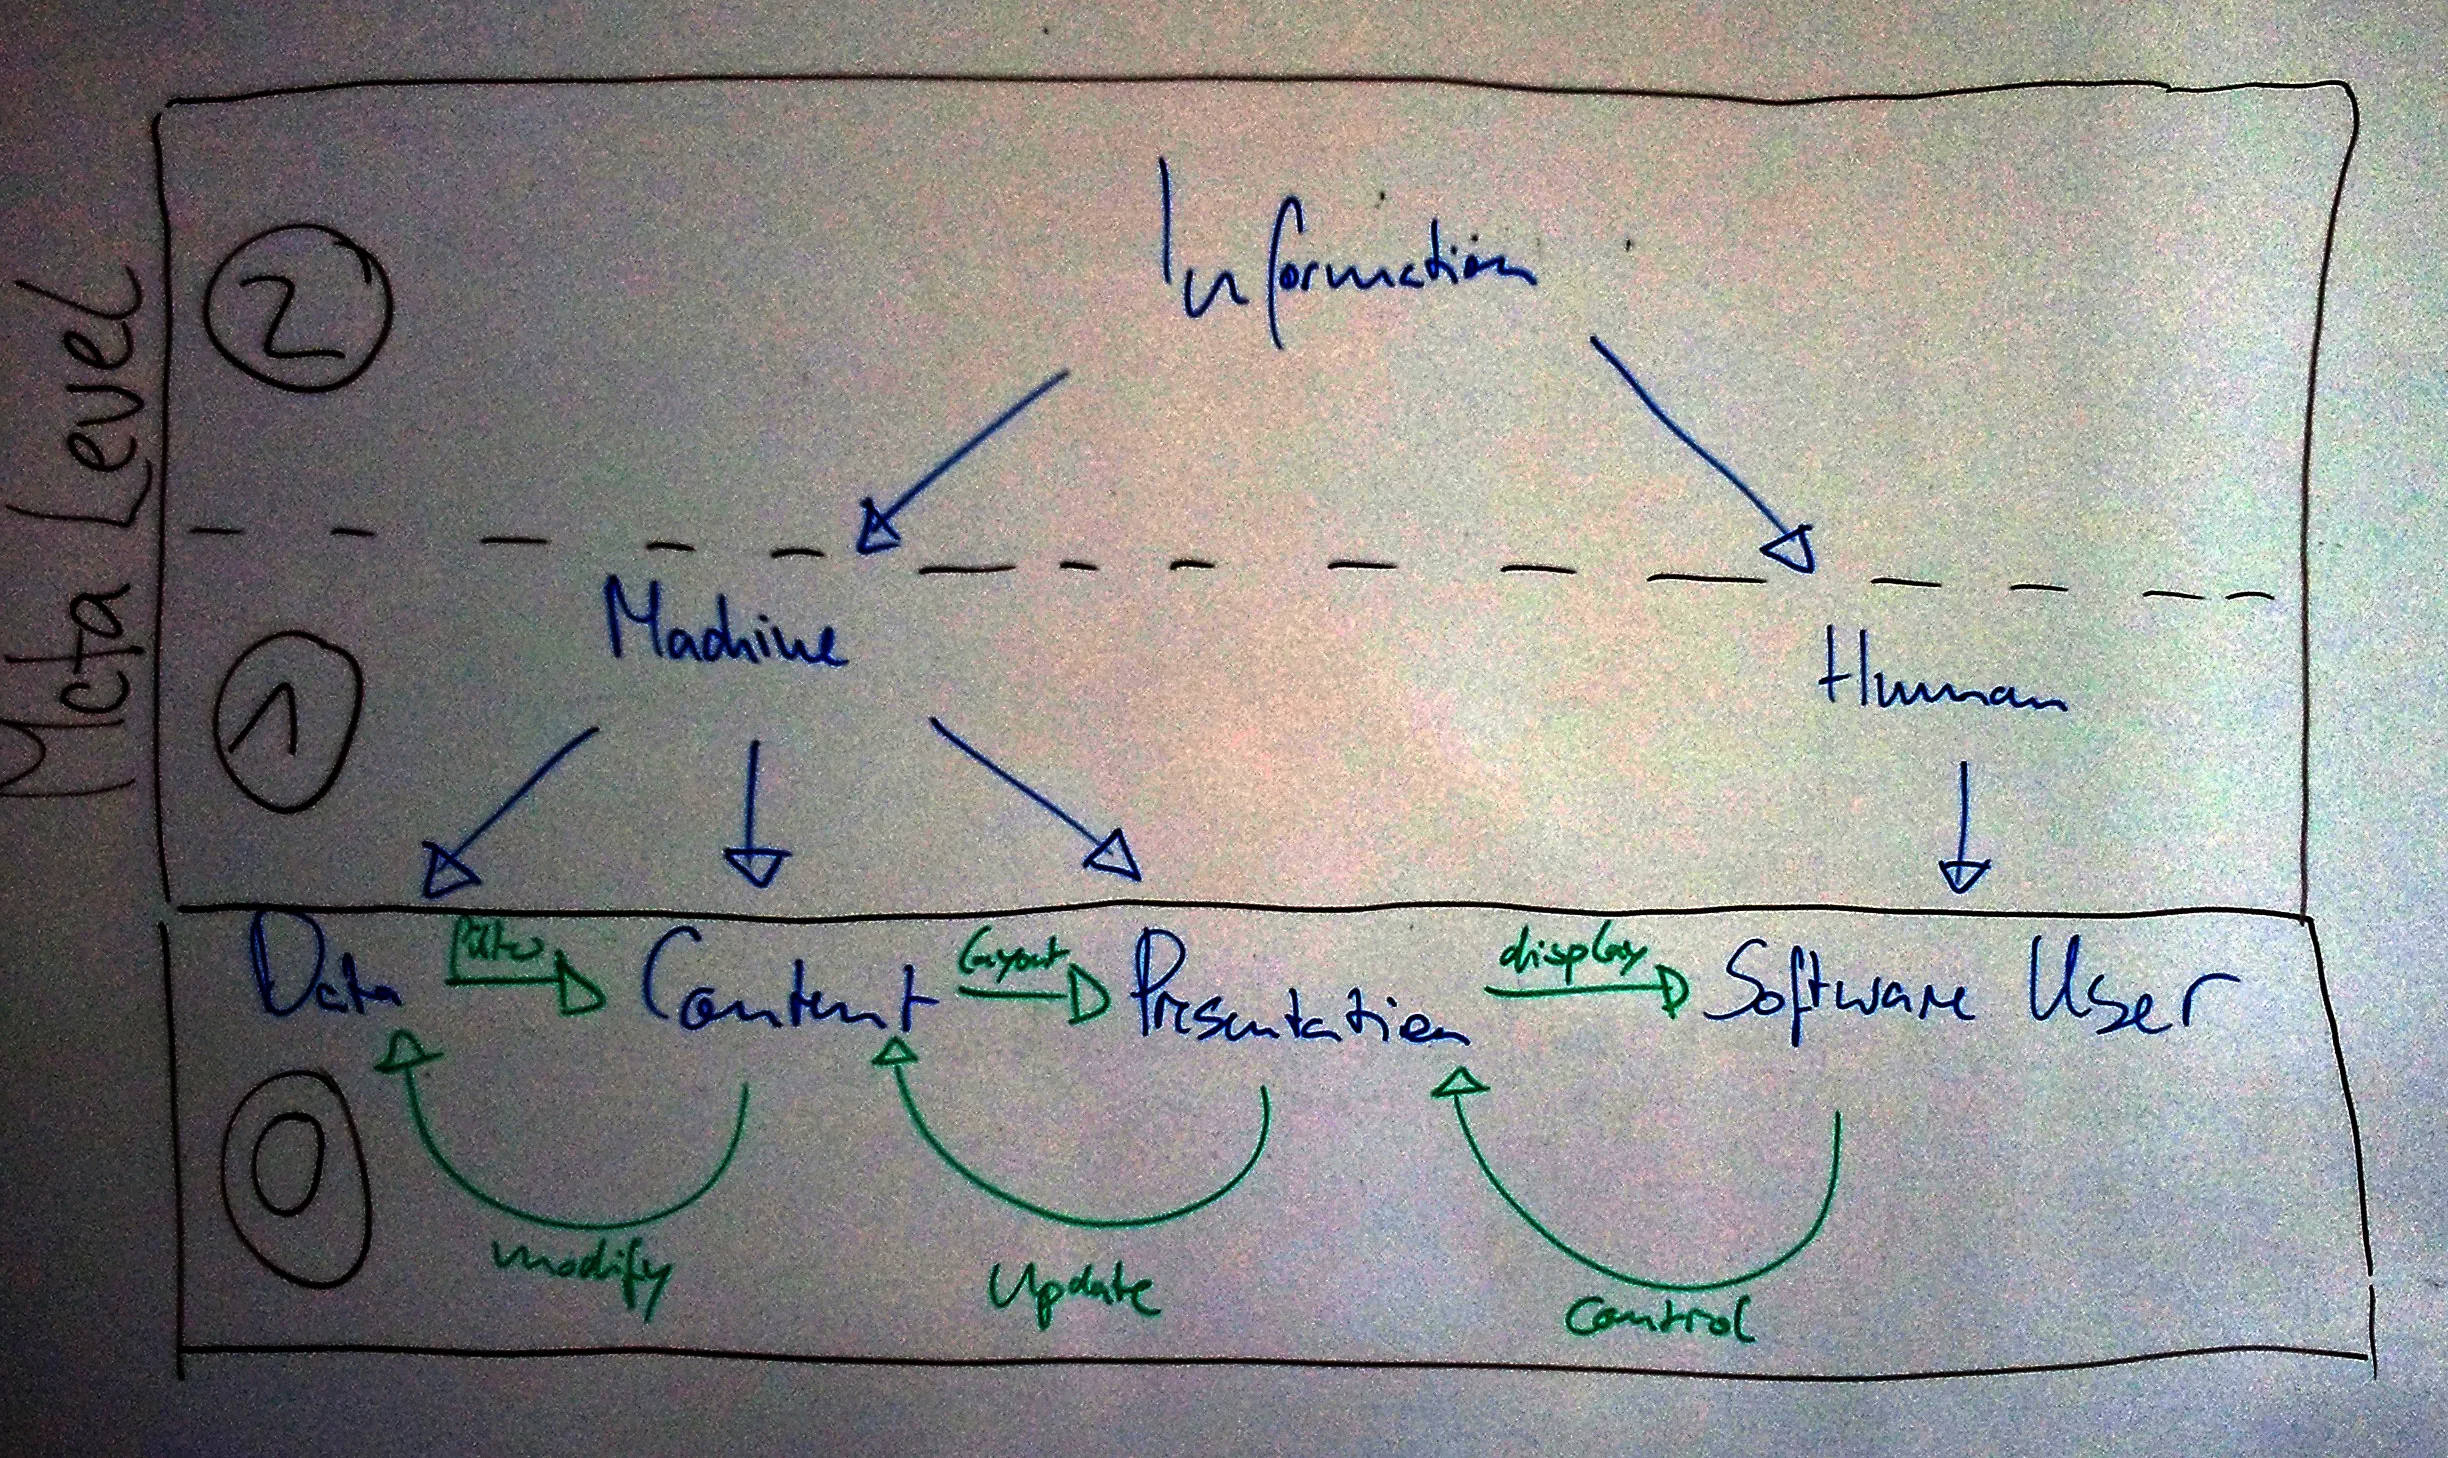 Meta Level
2
Information
Machine
Human
1
Data filter Content layout Presentation display Software User
0
modify
Update
Control